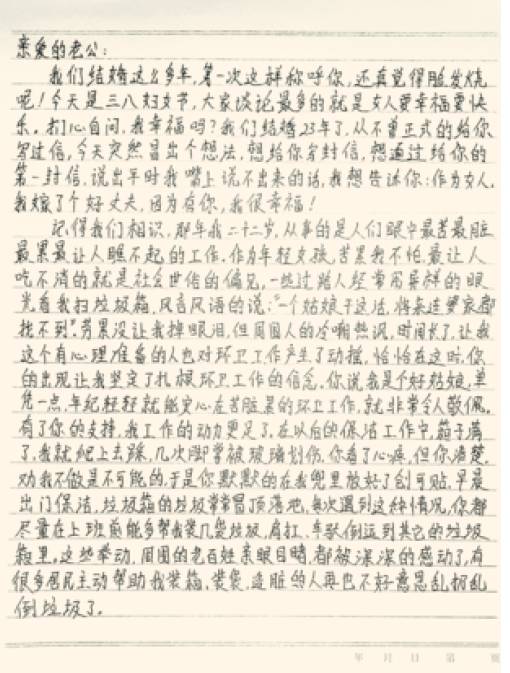 亲爱的老公:
我们结婚这么多年,第一次这样称呼你,还真觉得脸发烧
呢!今天是三八妇女节,大家谈论最多的就是女人要幸福要快
乐。扪心自问,我幸福吗?我们结婚23年了,从不曾正式的给你
写过信,今天突然冒出个想法,想给你写封信,想通过给你的
第一封信,说出平时我嘴上说不出来的话,我想告诉你:作为女人,
我嫁了个好丈夫,因为有你,我很幸福!
记得我们相识,那年我二十二岁,从事的是人们眼中最苦最脏
最累最让人瞧不起的工作。作为年轻女孩,苦累我不怕,最让人
吃不消的就是社会世俗的偏见,一些过路人经常用异样的眼
光看我扫垃圾箱,风言风语的说:“一个姑娘干这活,将来连婆家都
找不到”。劳累没让我掉眼泪,但周围人的冷嘲热讽,时间长了,让我
这个有心理准备的人也对环卫工作产生了动摇,恰恰在这时,你
的出现让我坚定了扎根环卫工作的信念,你说我是个好姑娘,单
凭一点,年纪轻轻就能安心在苦脏累的环卫工作,就非常令人敬佩。
有了你的支持,我工作的动力更足了。在以后的保洁工作中,箱子满
了,我就爬上去踩,几次脚掌被玻璃划伤,你看了心疼,但你清楚
劝我不做是不可能的,于是你默默的在我兜里放好了创可贴,早晨
出门保洁,垃圾箱的垃圾常常冒顶落地,每次遇到这种情况,你都
尽量在上班前能多帮我装几袋垃圾,肩扛、车驮倒运到其它的垃圾
箱里。这些举动,周围的老百姓亲眼目睹,都被深深的感动了,有
很多居民主动帮助我装箱、装袋,造脏的人再也不好意思乱扔乱
倒垃圾了。
年 月 日 第 页